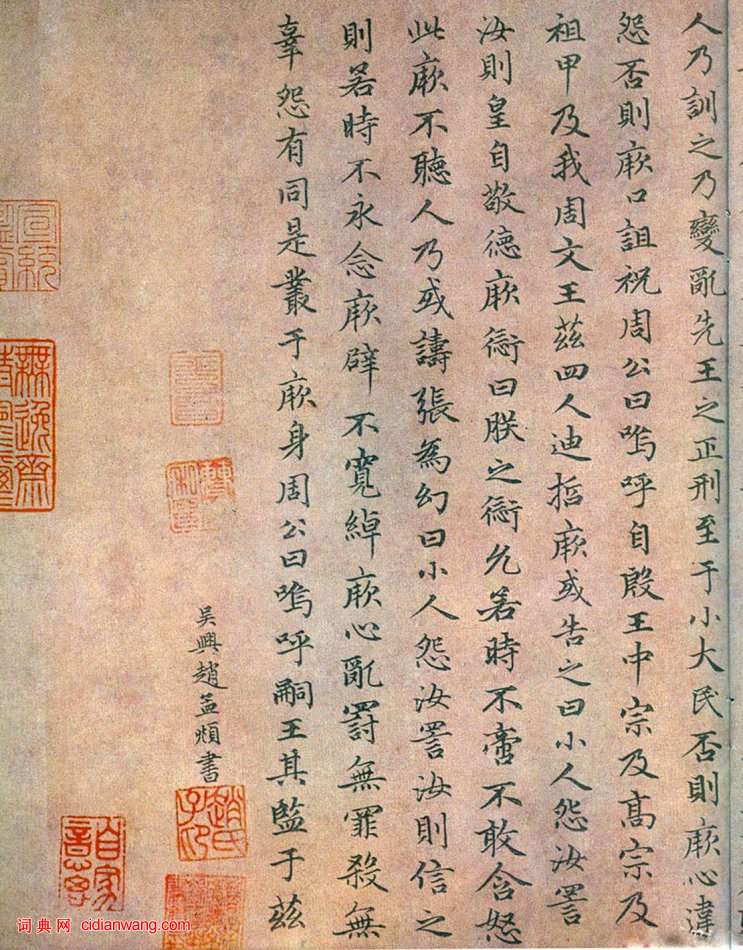 人乃訓之乃變亂先王之正刑至于小大民否則厥心違
怨否則厥口詛祝周公曰嗚呼自殷王中宗及高宗及
祖甲及我周文王茲四人迪哲厥或告之曰小人怨汝詈
汝則皇自敬德厥愆曰朕之愆允若時不啻不敢含怒
此厥不聽人乃或譸張為幻曰小人怨汝詈汝則信之
則若時不永念厥辟不寬綽厥心亂罰無罪殺無
辜怨有同是叢于厥身周公曰嗚呼嗣王其監于茲
吳興趙孟頫書
趙氏子昂
自家意思
無逸齋
宣統
词典网 cidianwang.com